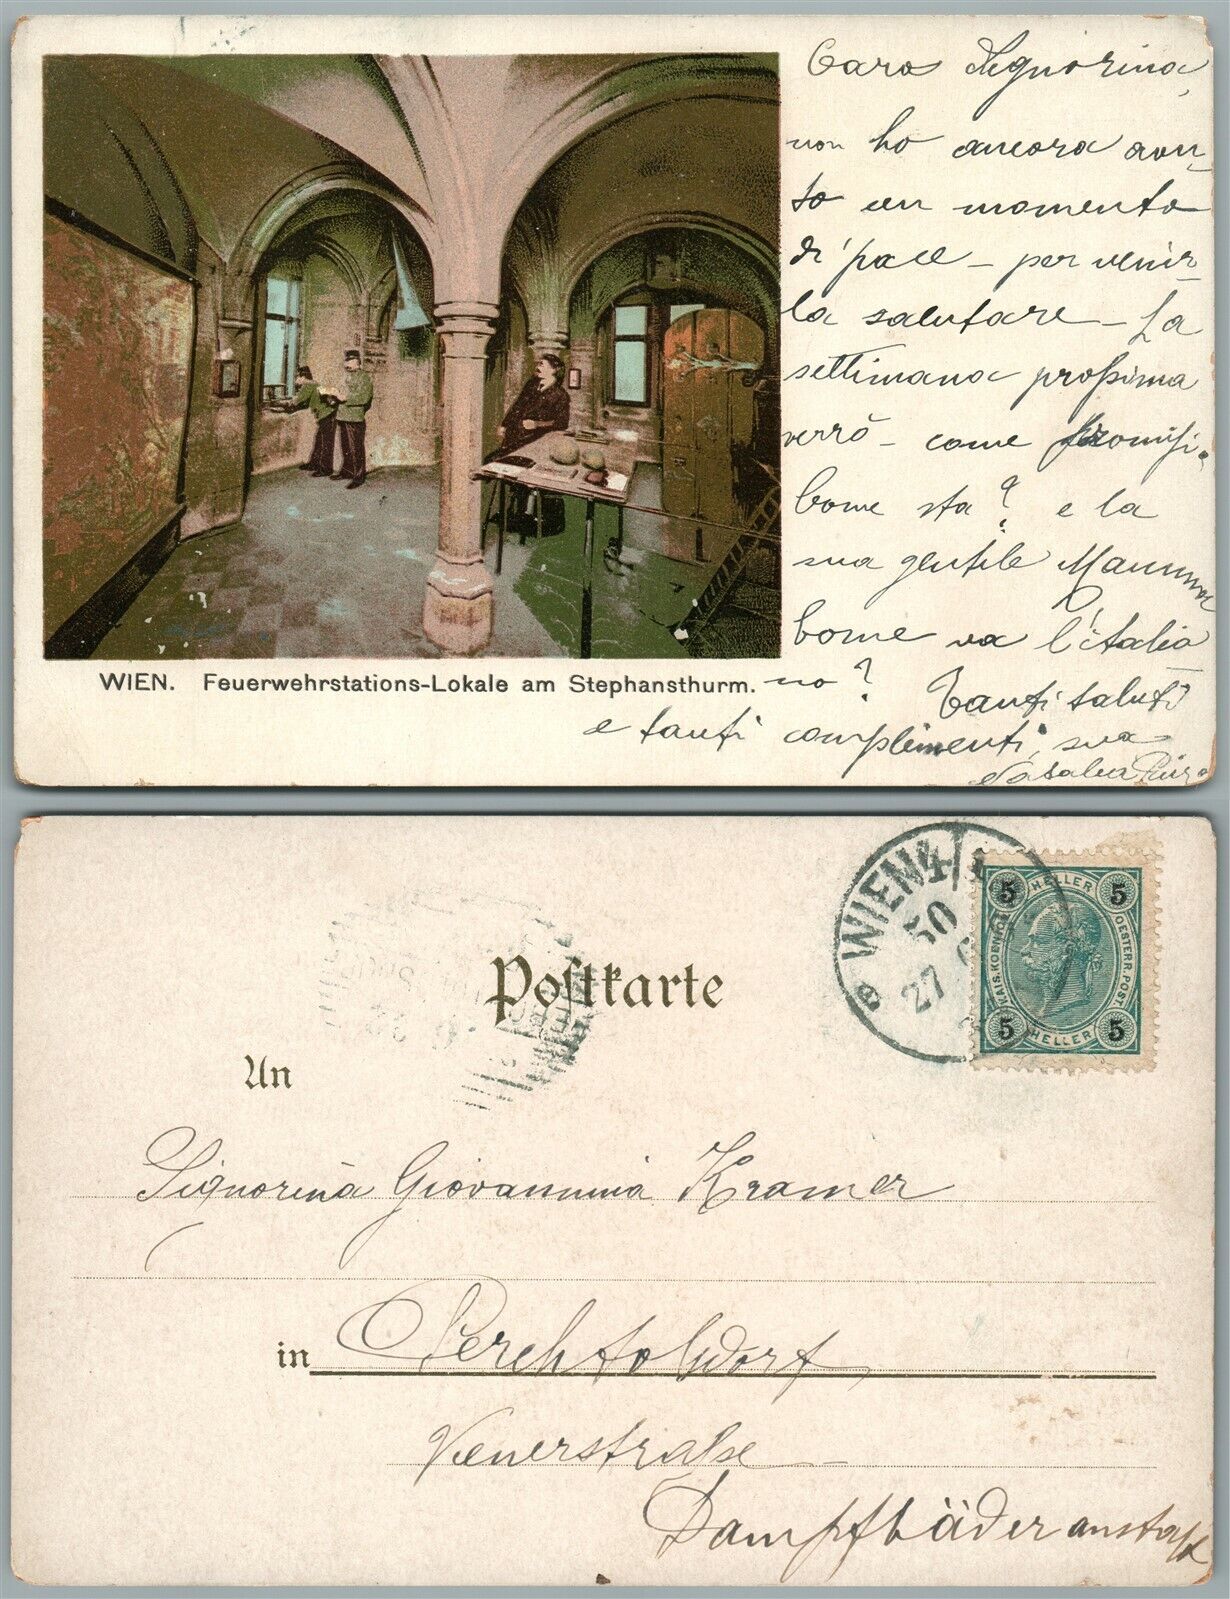 Cara Signorina,
non ho ancora avu-
to un momento
di pace - per venir-
la salutare - La
settimana proßima
verrò - come promißi.
Come sta? e la
sua gentile Mamma
Come va l'italia
no? Tanti saluti
e tanti complimenti, sua
WIEN. Feuerwehrstations-Lokale am Stephansthurm.
Postkarte
WIEN 4/1
50
27
5 HELLER 5
KAIS. KOENIGL. OESTERR. POST.
5 HELLER 5
An
Signorina Giovannina Kramer
in Perchtolsdorf,
Vienerstraße
Dampfbäderanstalt